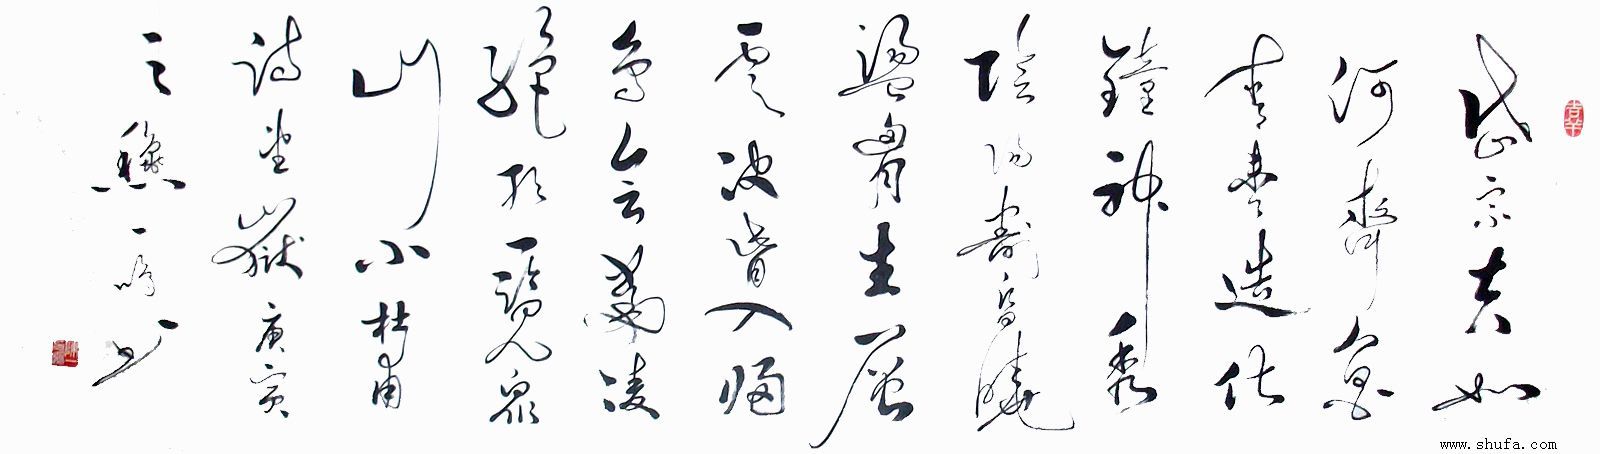 岱宗夫如
何齊魯
青未了造化
鐘神秀
陰陽割昏曉
盪胸生層
雲決眥入歸
鳥会當凌
絕頂一覽眾
山小杜甫
詩望嶽庚寅
之秋一
www.shufa.com